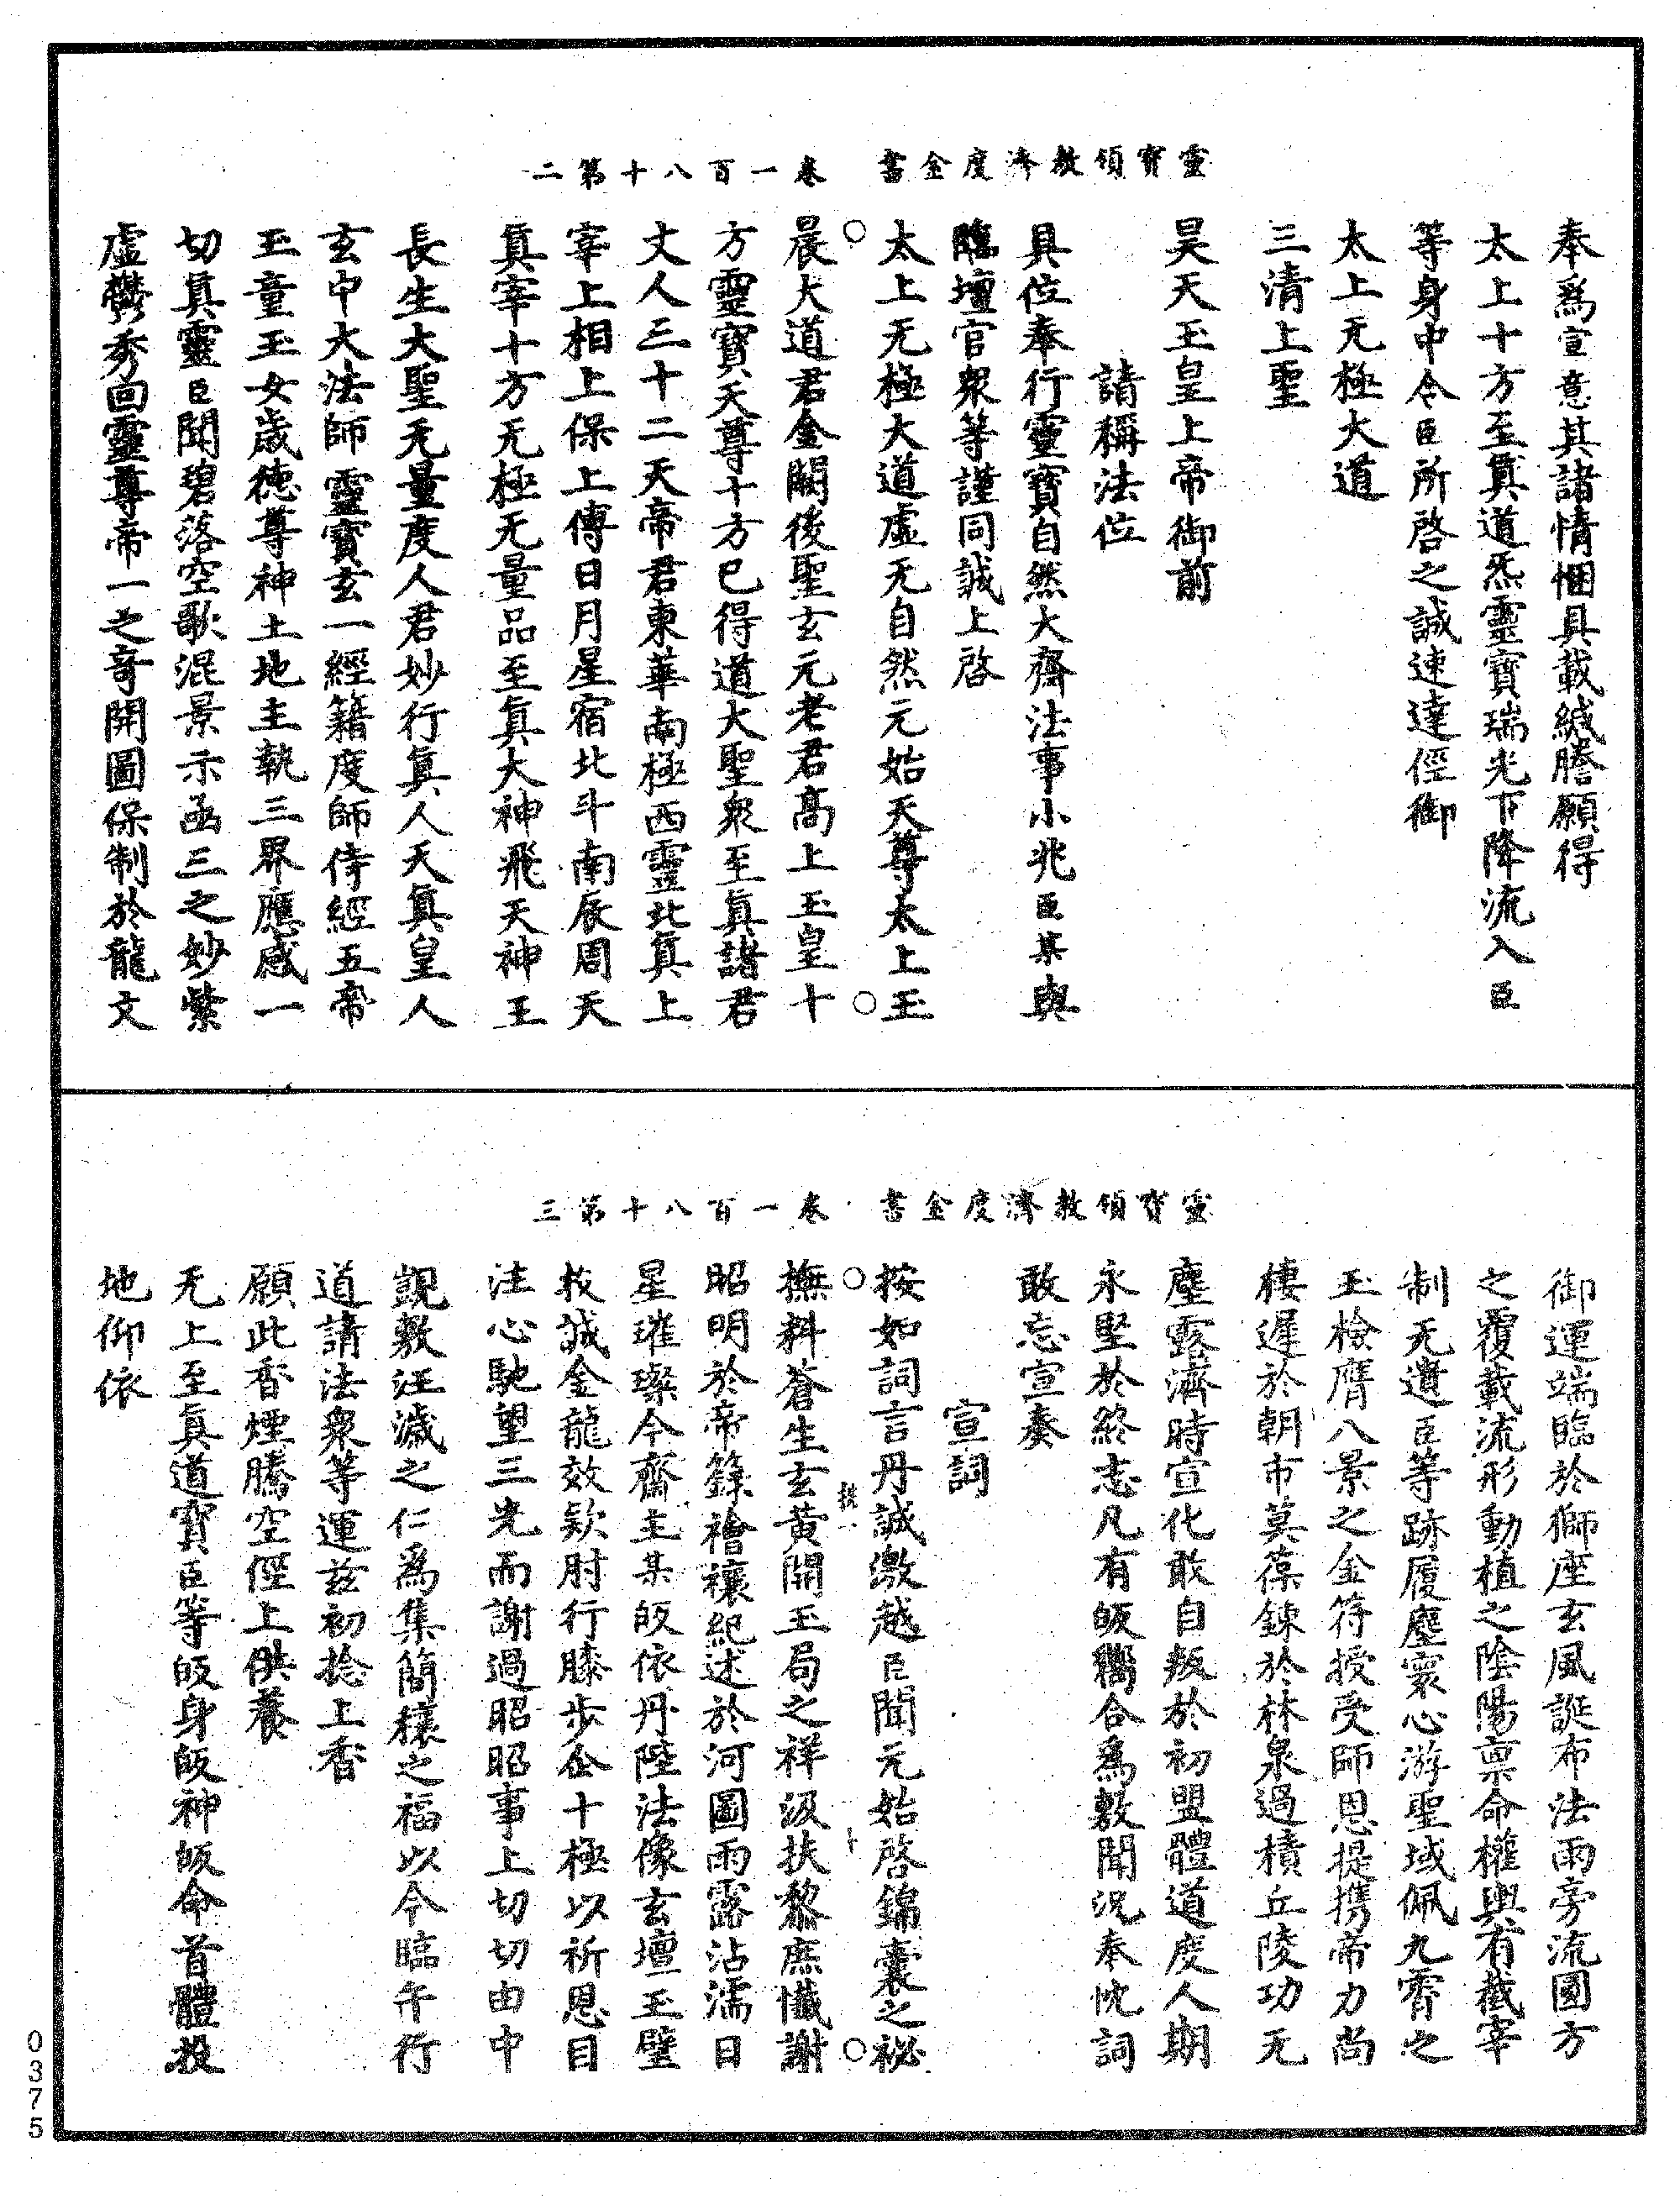 靈寶領教濟度金書　卷一百八十第二
奉爲宣意其諸情悃具載緘謄願得
太上十方至真道炁靈寶瑞光下降流入臣
等身中令臣所啓之誠速達徑御
太上无極大道
三清上聖
昊天玉皇上帝御前
請稱法位
具位奉行靈寶自然大齋法事小兆臣某與
臨壇官衆等謹同誠上啓
太上无極大道虛无自然元始天尊太上玉
晨大道君金闕後聖玄元老君高上玉皇十
方靈寶天尊十方已得道大聖衆至真諸君
丈人三十二天帝君東華南極西靈北真上
宰上相上保上傅日月星宿北斗南辰周天
真宰十方无極无量品至真大神飛天神王
長生大聖无量度人君妙行真人天真皇人
玄中大法師靈寶玄一經籍度師侍經五帝
玉童玉女歲德尊神土地主執三界應感一
切真靈臣聞碧落空歌混景示函三之妙紫
虛鬱秀回靈尊帝一之奇開圖保制於龍文
靈寶領教濟度金書　卷一百八十第三
御運端臨於獅座玄風誕布法雨旁流圓方
之覆載流形動植之陰陽稟命權輿有截宰
制无遺臣等跡履塵寰心游聖域佩九霄之
玉檢膺八景之金符授受師恩提携帝力尚
棲遲於朝市莫葆鍊於林泉過積丘陵功无
塵露濟時宣化敢自叛於初盟體道度人期
永堅於終志凡有皈嚮合爲敷聞況奉忱詞
敢忘宣奏
宣詞
按如詞言丹誠激越臣聞元始啓錦囊之祕
撫料蒼生玄黄開玉局之祥汲扶黎庶懺謝
昭明於帝籙禬禳紀述於河圖雨露沾濡日
星璀璨今齋主某皈依丹陛法像玄壇玉璧
投誠金龍效欵肘行膝步企十極以祈恩目
注心馳望三光而謝過昭昭事上切切由中
覬敷汪濊之仁爲集簡穰之福以今臨午行
道請法衆等運茲初捻上香
願此香煙騰空徑上供養
无上至真道寶臣等皈身皈神皈命首體投
地仰依
0375